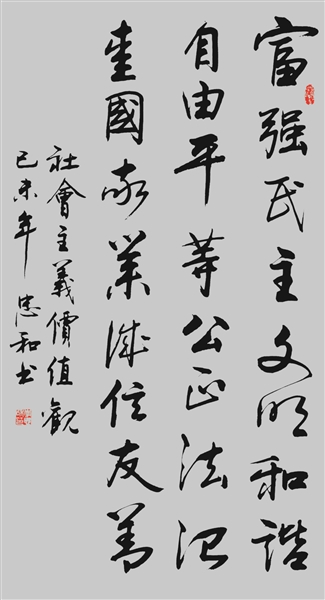 富强民主文明和谐
自由平等公正法治
爱國敬業诚信友善
社會主義價值觀
己未年 忠和书